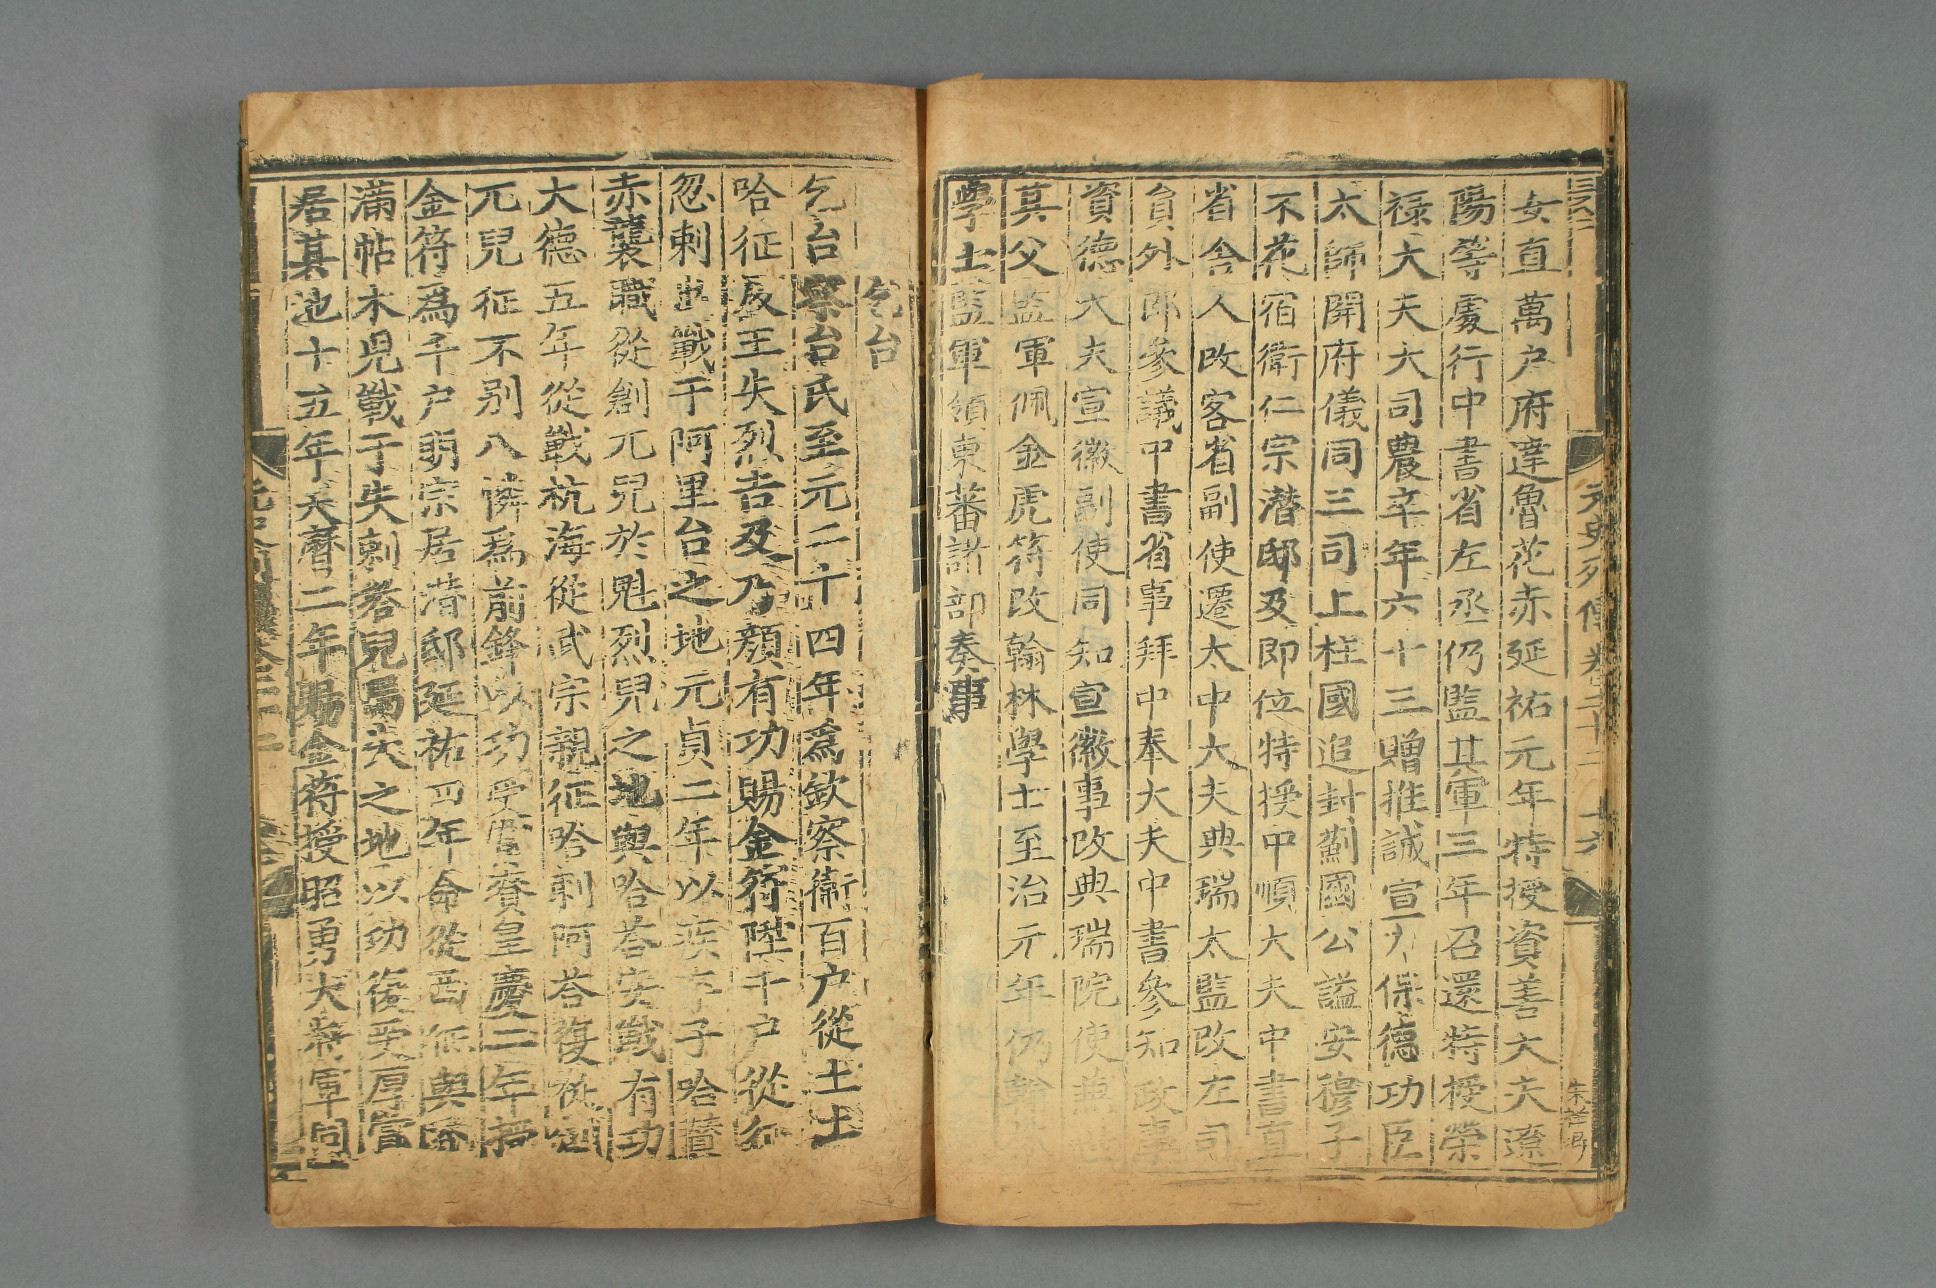 三百六
元史列傳卷二十二
十六
女直萬户府達魯花赤延祐元年特授資善大夫遼
陽等處行中書省左丞仍監其軍三年召還特授榮
禄大夫大司農卒年六十三贈推誠宣力保德功臣
太師開府儀同三司上柱國追封薊國公謚安穆子
不花宿衛仁宗潛邸及即位特授中順大夫中書直
省舍人改客省副使遷太中大夫典瑞太監改左司
員外郎參議中書省事拜中奉大夫中書參知政事
資德大夫宣徽副使同知宣徽事改典瑞院使兼
其父監軍佩金虎符改翰林學士至治元年仍翰
學士監軍領東蕃諸部奏事
乞台
乞台察台氏至元二十四年爲欽察衛百户從土土
哈征叛王失烈吉及乃顔有功賜金符陞千户從征
忽剌出戰于阿里台之地元貞二年以疾卒子哈贊
赤襲職從創兀兒於魁烈兒之地與哈荅安戰有功
大德五年從戰杭海從武宗親征哈剌阿荅復從創
兀兒征不别八憐爲前鋒以功受賞賚皇慶二年授
金符爲千户明宗居潛邸延祐四年命從西征與
滿帖木兒戰于失剌荅兒馬失之地以功復受厚當
居其地十五年天曆二年賜金符授昭勇大將軍同